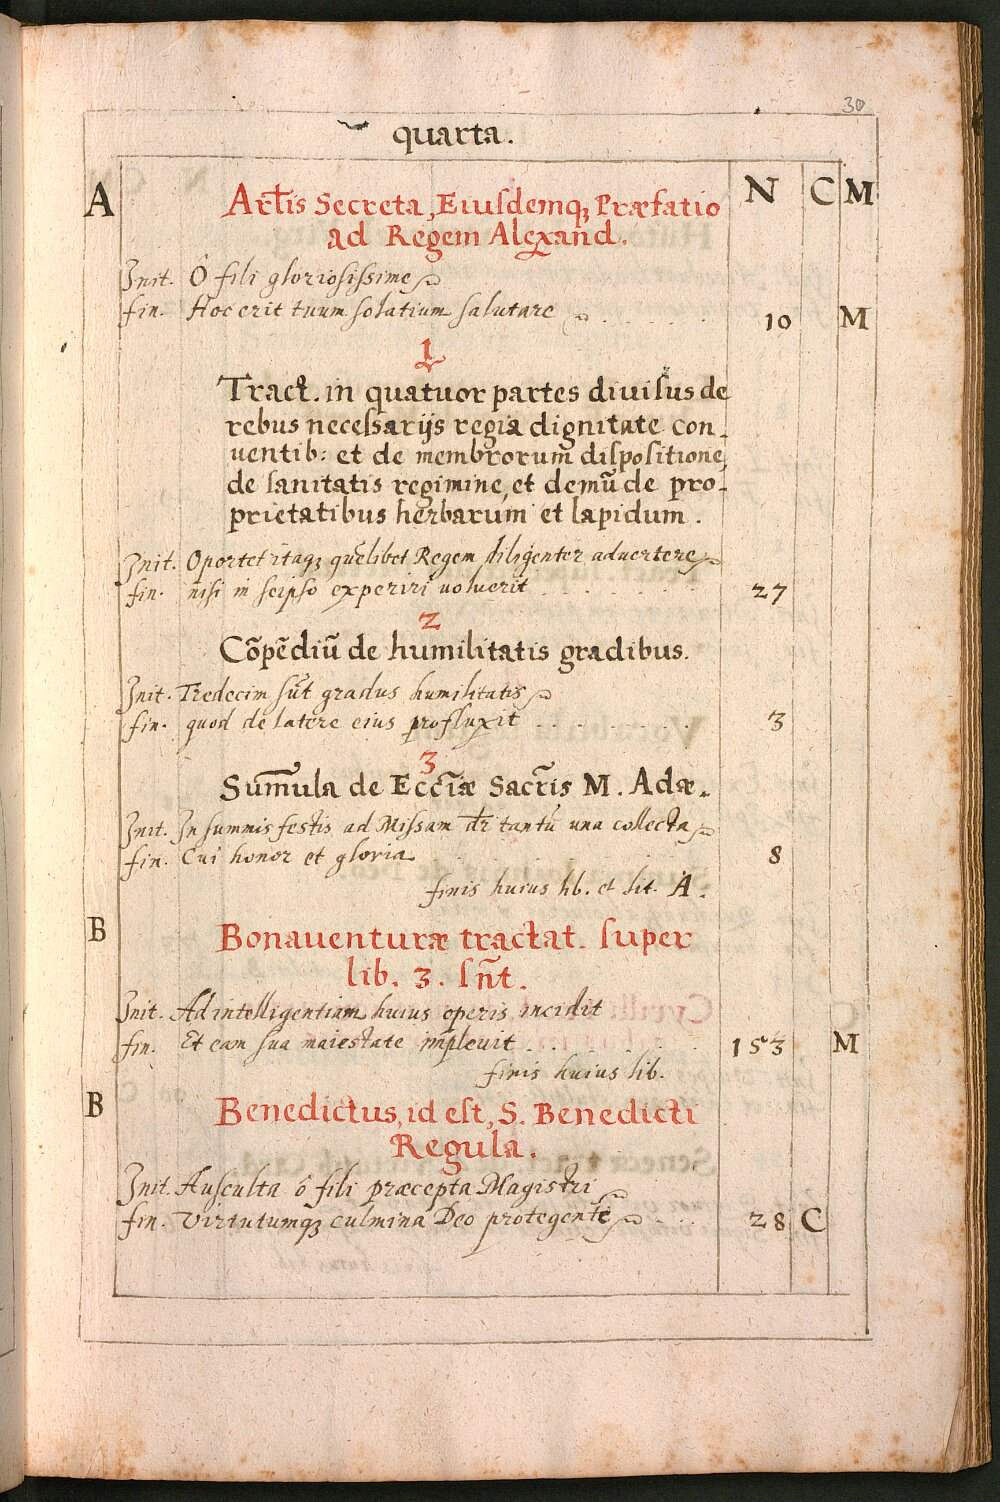 30
quarta.
A N C M
Artis Secreta, Eiusdemq; Præfatio
ad Regem Alexand.
Init. Ô fili gloriosissime
fin. Hoc erit tuum solatium salutare 10 M
1
Tract. in quatuor partes diuisus de
rebus necessarijs regia dignitate con-
uentib: et de membrorum̃ dispositione,
de sanitatis regimine, et demũ de pro-
prietatibus herbarum et lapidum.
Init. Oportet itaq; quẽlibet Regem diligenter aduertere
fin. nisi in seipso experiri uoluerit 27
2
Cõpẽdiũ de humilitatis gradibus.
Init. Tredecim sũt gradus humilitatis
fin. quod de latere eius profluxit 3
3
Sum̃ula de Eccĩæ Sacr̃is M. Adæ.
Init. In summis festis ad Missam dr̃ tantũ una collecta
fin. Cui honor et gloria 8
finis huius lib. et lit. A.
B
Bonauenturæ tractat. super
lib. 3. sñt.
Init. Ad intelligentiam huius operis incidit
fin. Et eam sua maiestate impleuit 153 M
finis huius lib.
B
Benedictus, id est, S. Benedicti
Regula.
Init. Ausculta ô fili præcepta Magistri
fin. Virtutumq; culmina Deo protegente 28 C